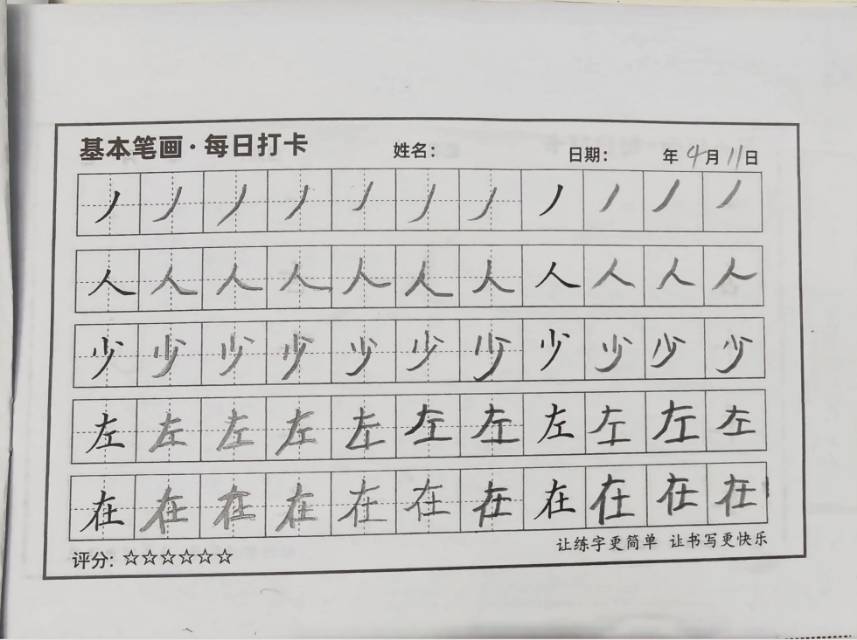 基本笔画·每日打卡 姓名： 日期： 年4月11日
丿丿丿丿丿丿丿丿丿丿丿
人人人人人人人人人人人
少少少少少少少少少少少
左左左左左左左左左左左
在在在在在在在在在在在
评分：☆☆☆☆☆☆ 让练字更简单 让书写更快乐